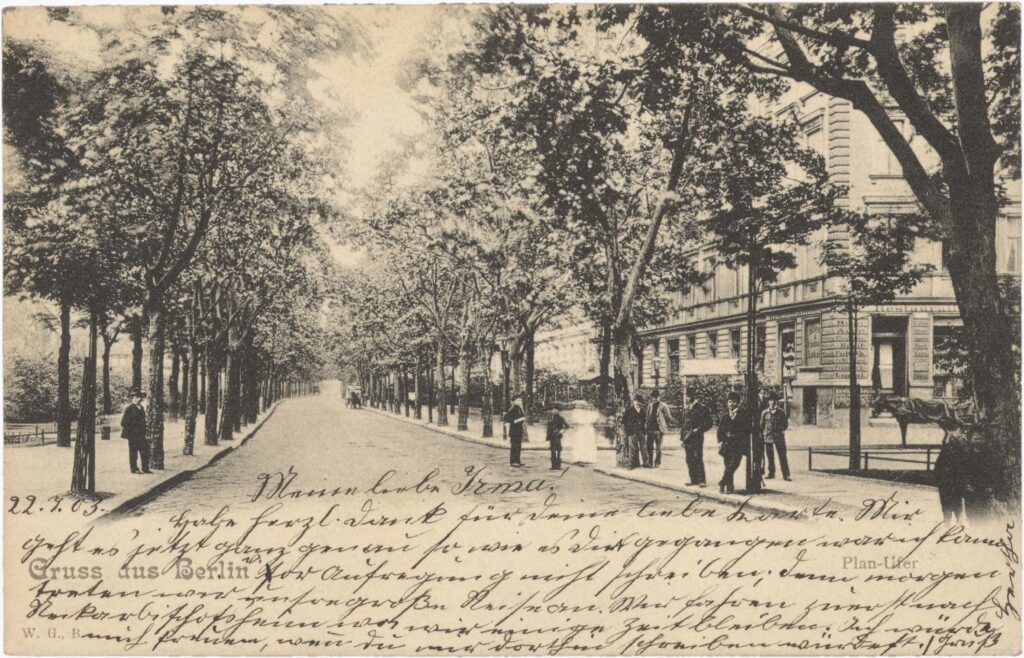 Meine liebe Irma!
22.7.03.
Habe herzl. Dank für deine liebe Karte. Mir
geht es jetzt ganz genau so wie es dir gegangen war ich kann
Gruss aus Berlin
vor Aufregung nicht schreiben, denn morgen
Plan-Ufer
treten wir unsre große Reise an. Wir fahren zuerst nach
Neckarbischofsheim wo wir einige Zeit bleiben. Ich würde
W. G., B.
mich freuen, wenn du mir dorthin schreiben würdest. Gruß